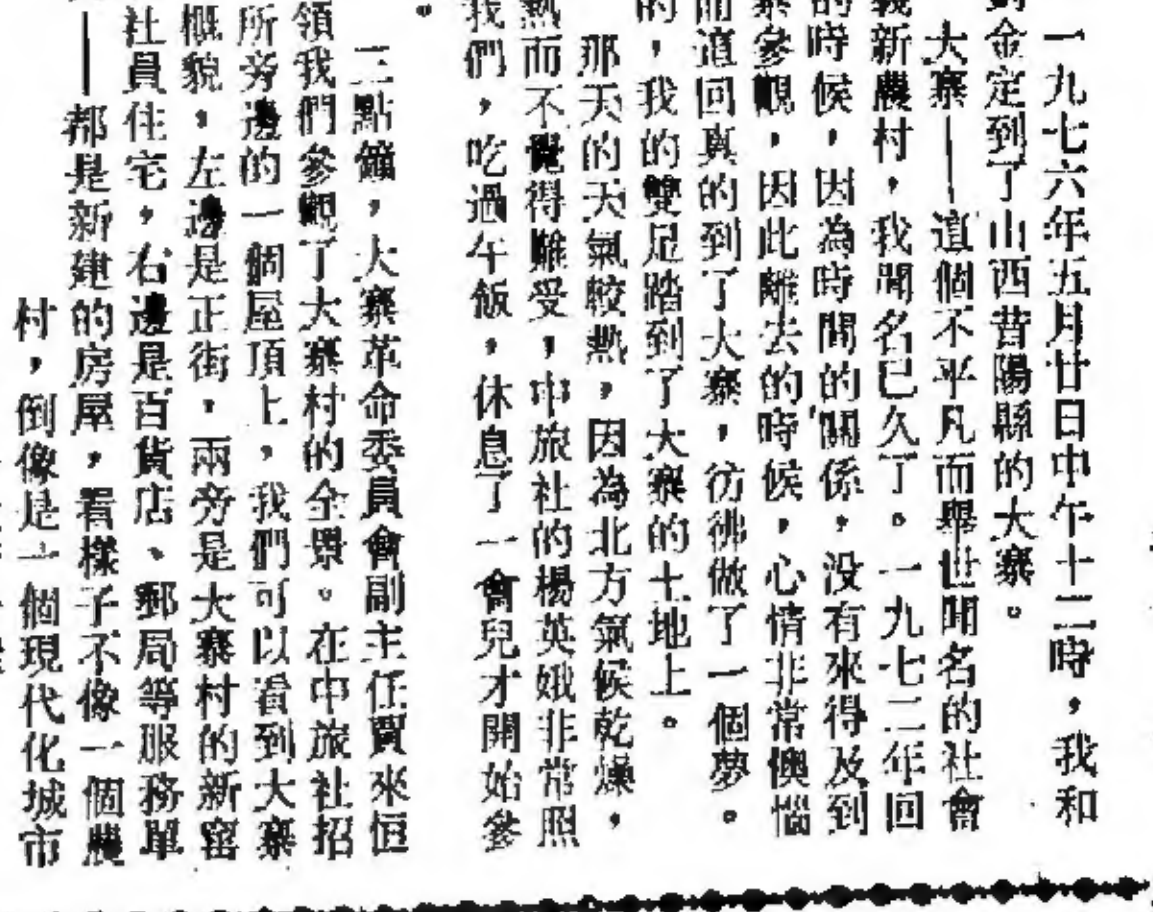 一九七六年五月廿日中午十二時，我和
金定到了山西昔陽縣的大寨。
大寨——這個不平凡而舉世聞名的社會
義新農村，我聞名已久了。一九七二年回
的時候，因為時間的關係，没有來得及到
寨參觀，因此離去的時候，心情非常懊惱
而這回真的到了大寨，彷彿做了一個夢。
的，我的雙足踏到了大寨的土地上。
那天的天氣較熱，因為北方氣候乾燥，
熱而不覺得難受，中旅社的楊英娥非常照
我們，吃過午飯，休息了一會兒才開始參
。
三點鐘，大寨革命委員會副主任賈來恒
領我們參觀了大寨村的全景。在中旅社招
所旁邊的一個屋頂上，我們可以看到大寨
概貌，左邊是正街，兩旁是大寨村的新窰
社員住宅，右邊是百貨店、郵局等服務單
——都是新建的房屋，看樣子不像一個農
村，倒像是一個現代化城市